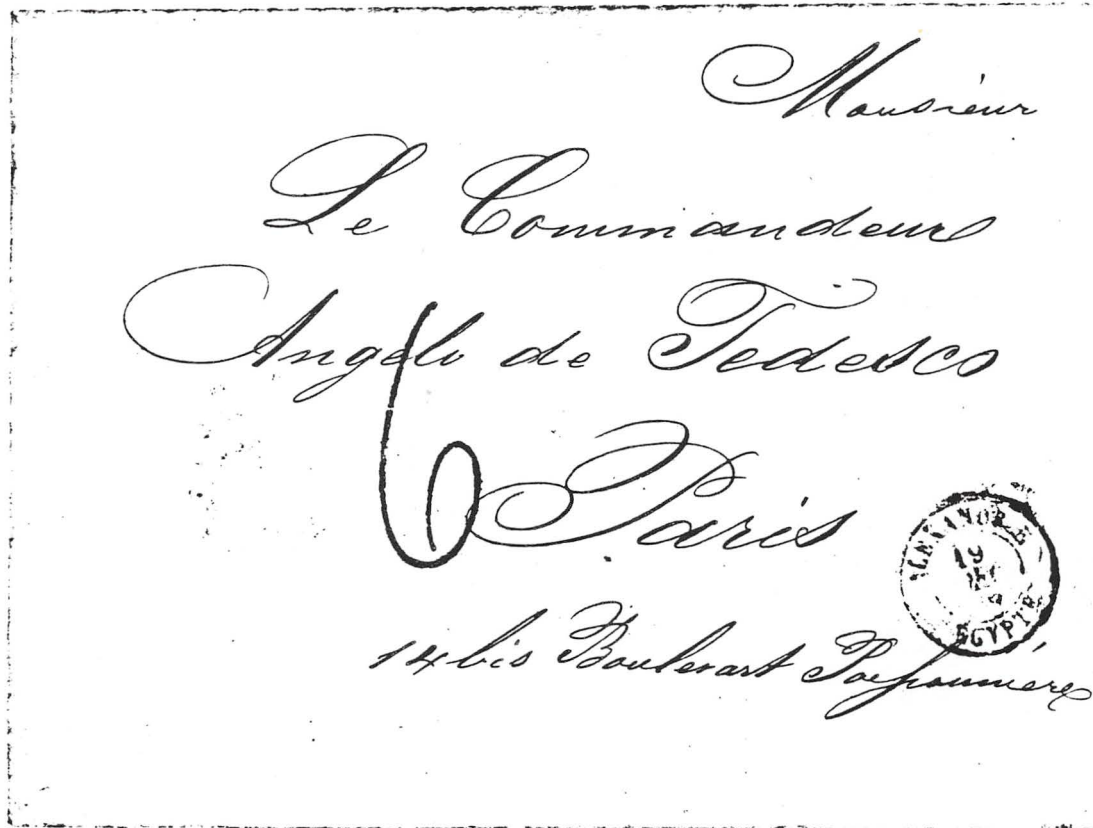 Monsieur
Le Commandeur
Angelo de Tedesco
6
Paris
ALEXANDRIE
19
DEC
EGYPTE
14 bis Boulevart Poissonnière